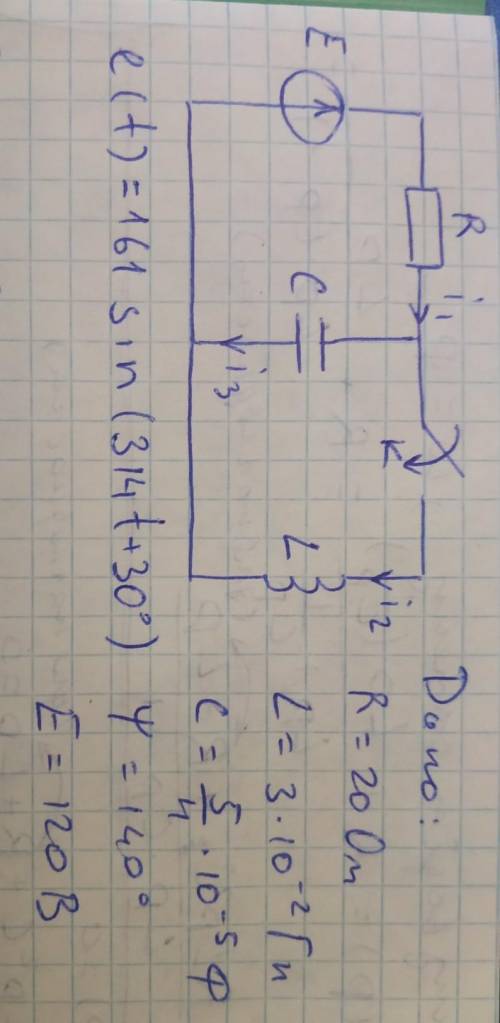 E
R
i₁
C
i₃
K
L
i₂
e(t) = 161 sin(314t+30°)
Дано:
R = 20 Ом
L = 3·10⁻² Гн
C = 5/4 · 10⁻⁵ Ф
Ψ = 140°
E = 120 В